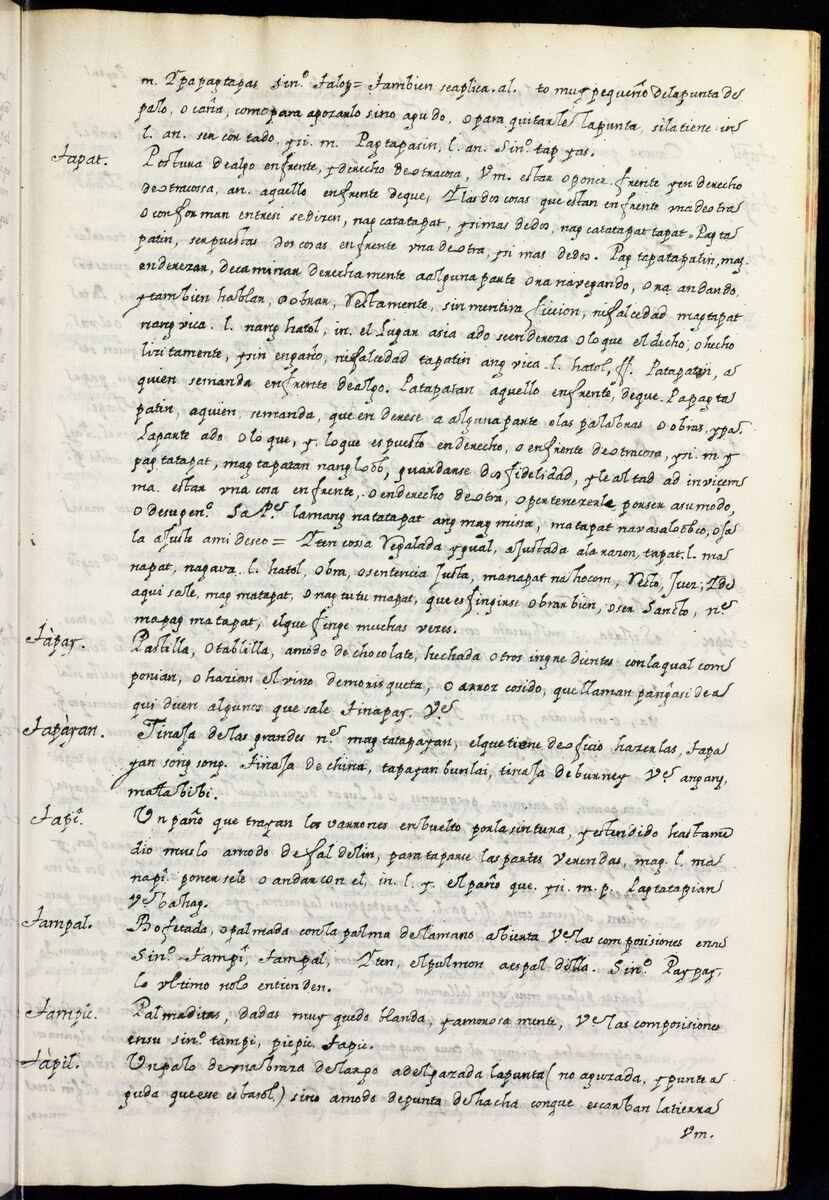 m. Ypapagtapas sin.º Talop= tambien seaplica. al. to muy pequeño delapunta de
palo, o caña, como para agozarlo sino agudo, o para quitarle lapunta, silatiene in
l. an. ser con tado, ysi. m. Pagtapasin, l. an. Sin.º tap yas.
Tapat. Postura dealgo enfrente, y derecho deotracosa, Vm. estar o poner frente yen derecho
deotracosa, an. aquello enfrente deque, Ylas dos cosas que estan enfrente vnadeotra
o conforman entresi sedizen, nagcatatapat, ysimas dedos, nag catatapat tapat. Pagta
patin, serpuestas dos cosas enfrente vna deotra, ysi mas dedos. Pagtapatapatin, mag.
enderezar, decaminar derechamente aalguna parte ora navegando, ora andando,
ytambien hablar, o obrar, Rectamente, sin mentira ficcion, nifalcedad magtapat
nang vica. l. nang hatol, in. el Lugar asia ado seendereza oloque eldicho, o hecho
lizitamente, ysin engaño, nifalcedad tapatin ang vica. l. hatol, ff. Patapatin, a
quien semanda enfrente dealgo. Patapatan aquello enfrente, deque. Papagta
patin, aquien, semanda, que en derese a alguna parte olas palabras o obras, ypa.
Laparte ado oloque, y. loque espuesto enderecho, o enfrente deotracosa, ysi. m y
pagtatapat, magtapatan nang loób, guardarse dofidelidad, yle al tad ad invicem
ma. estar vna cosa enfrente, o enderecho deotra, opertenezerle porser asumodo,
o desugen.º Sa P.e lamang natatapat ang mag missa, matapat navasaloobco, osa
la ajuste ami deseo= Yten cossa Regalada yqual, ajustada ala razon, tapat. l. ma
napat, nagava. l. hatol, obra, osentencia Justa, manapat na hocom, Recto, Juez; Yde
aqui sale, mag matapat, o nag tutu mapat, que esfingirse obrar bien, oser Sancto, n.e
mapagmatapat, elque finge muchas vezes.
Tàpay. Pastilla, otablilla, amodo de chocolate, hechada otros ingredientes conlaqual com
ponian, o hazian elvino demorisqueta, o arroz cosido, quellaman pangasi dea
qui dicen algunos que sale tinapay. Ve.
Tapàyan. Tinaja delas grandes n.e mag tatapayan, elque tiene deoficio hazerlas, tapa
yan song song. tinaja de china, tapayan bunlai, tinaja deburney Ve. angang,
matabibi.
Tapî. Vn paño que trayan los varrones enbuelto porlasintura, yestendido hastame
dio muslo amodo de faldelin, para taparse laspartes verendas, mag. l. ma
napî. ponersele o andar con el, in. l. y. elpaño que. ysi. m. p. Pagtatapian
Ve. bahag.
Tampal. Bofetada, opalmada conla palma delamano abierta Ve. las composisiones ensu
Sin.º tampî, tampal, Yten, elpulmon aespaldilla. Sin.º Paypay,
lo vltimo nolo entienden.
Tampic. Palmaditas, dadas muy quedo blanda, yamorosamente, Ve. las composisiones
ensu sin.º tampi, picpic. tapic.
Tàpil. Vnpalo de vnabraza delargo adelgazada lapunta (no aguzada, ypuntea
guda queese esbasol,) sino amodo depunta dehacha conque escarban latierra
Vm.